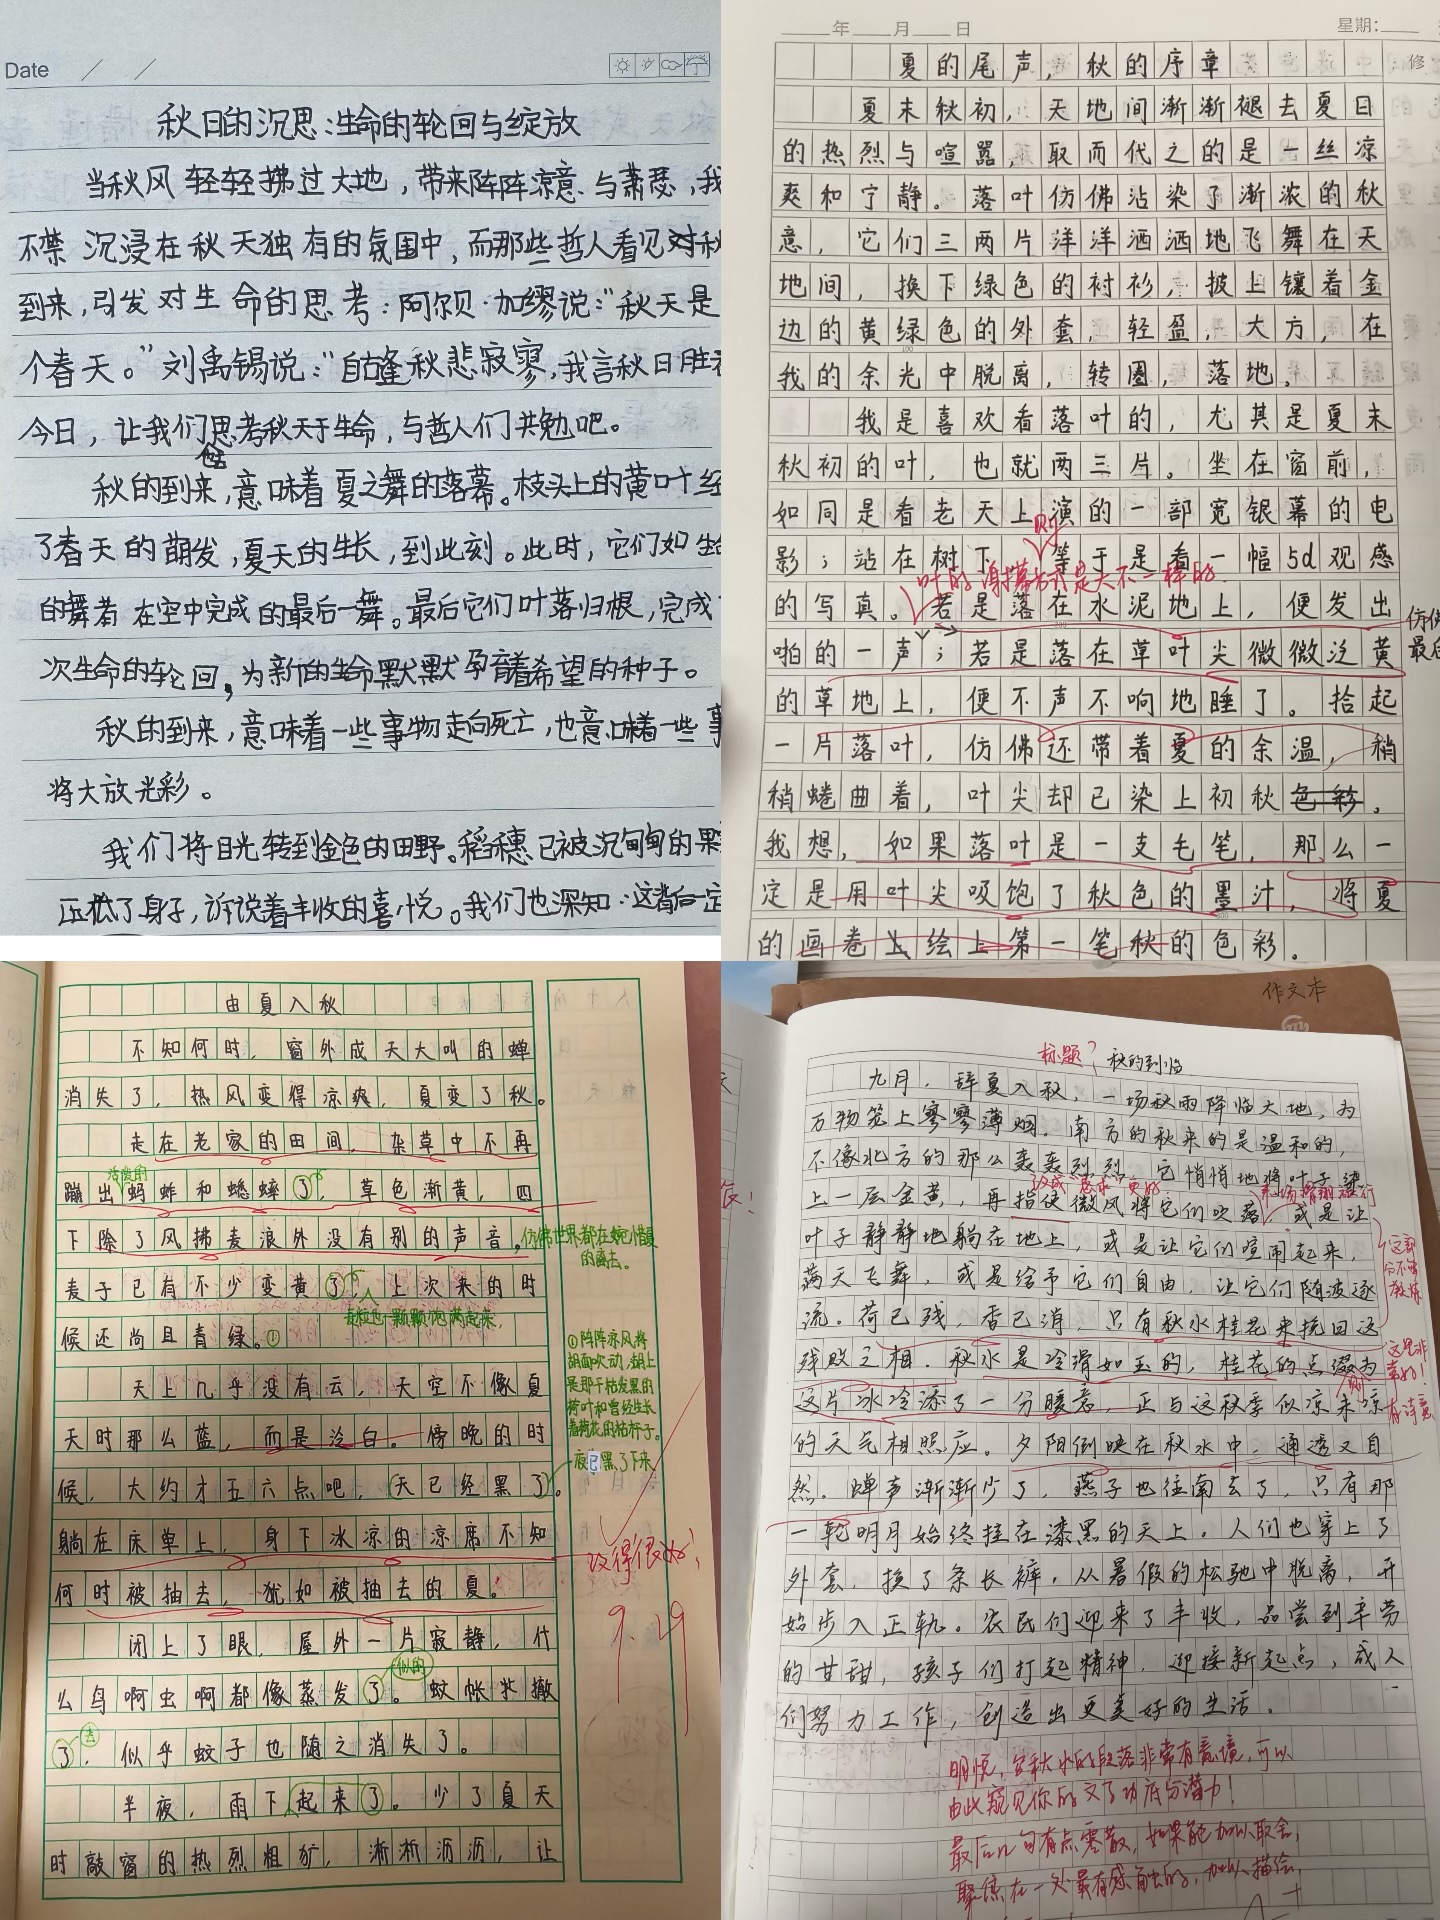 Date / /
秋日的沉思:生命的轮回与绽放
当秋风轻轻拂过大地,带来阵阵凉意与萧瑟,我
不禁沉浸在秋天独有的氛围中,而那些哲人看见对秋
到来,引发对生命的思考:阿尔贝·加缪说:"秋天是
个春天。"刘禹锡说:"自古逢秋悲寂寥,我言秋日胜春
今日,让我们思考秋天于生命,与哲人们共勉吧。
秋的到来,意味着夏之舞的落幕。枝头上的黄叶经
了春天的萌发,夏天的生长,到此刻。此时,它们如
的舞者在空中完成的最后一舞。最后它们叶落归根,完成
次生命的轮回,为新的生命默默孕育着希望的种子。
秋的到来,意味着一些事物走向死亡,也意味着一些事
将大放光彩。
我们将目光转到金色的田野。稻穗已被沉甸甸的果
压低了身子,诉说着丰收的喜悦。我们也深知,这背后一定
年 月 日 星期:
修
夏的尾声,秋的序章
夏末秋初,天地间渐渐褪去夏日
的热烈与喧嚣,取而代之的是一丝凉
爽和宁静。落叶仿佛沾染了渐浓的秋
意,它们三两片洋洋洒洒地飞舞在天
地间,换下绿色的衬衫,披上镶着金
边的黄绿色的外套,轻盈,大方,在
我的余光中脱离,转圈,落地。
我是喜欢看落叶的,尤其是夏末
秋初的叶,也就两三片。坐在窗前,
如同是看老天上演的一部宽银幕的电
则
影;站在树下,等于是看一幅5d观感
叶的谢幕方式是大不一样的.
的写真。若是落在水泥地上,便发出
仿佛
啪的一声;若是落在草叶尖微微泛黄
最后
的草地上,便不声不响地睡了。拾起
一片落叶,仿佛还带着夏的余温,稍
稍蜷曲着,叶尖却已染上初秋色彩。
我想,如果落叶是一支毛笔,那么一
定是用叶尖吸饱了秋色的墨汁,将夏
的画卷上绘上第一笔秋的色彩。
由夏入秋
不知何时,窗外成天大叫的蝉
消失了,热风变得凉爽,夏变了秋。
走在老家的田间,杂草中不再
活泼的
蹦出蚂蚱和蟋蟀了,草色渐黄,四
下除了风拂麦浪外没有别的声音,
仿佛世界都在惋惜夏
的离去。
麦子已有不少变黄了,上次来的时
麦粒也一颗颗饱满起来,
候还尚且青绿。①
①阵阵凉风将
湖面吹动,湖上
是那干枯发黑的
荷叶和曾经生长
着荷花的枯杆子。
天上几乎没有云,天空不像夏
天时那么蓝,而是泛白。傍晚的时
候,大约才五六点吧,天已经黑了。
夜已黑了下来
躺在床单上,身下冰凉的凉席不知
改得很好!
何时被抽去,犹如被抽去的夏。
9.19
闭上了眼,屋外一片寂静,什
似的
么鸟啊虫啊都像蒸发了。蚊帐也撤
去
了,似乎蚊子也随之消失了。
半夜,雨下起来了。少了夏天
时敲窗的热烈粗犷,淅淅沥沥,让
作文本
标题? 秋的到临
九月,辞夏入秋,一场秋雨降临大地,为
万物笼上寥寥薄烟。南方的秋来的是温和的,
不像北方的那么轰轰烈烈,它悄悄地将叶子染
上一层金黄,再指使微风将它们吹落,或是让
叶子静静地躺在地上,或是让它们喧闹起来,
满天飞舞,或是给予它们自由,让它们随波逐
流。荷已残,香已消,只有秋水桂花来挽回这
残败之相。秋水是冷滑如玉的,桂花的点缀为
这里非
常好!
有诗意
这片冰冷添了一分暖意,正与这秋季似凉未凉
的天气相照应。夕阳倒映在秋水中,通透又自
然。蝉声渐渐少了,燕子也往南去了,只有那
一轮明月始终挂在漆黑的天上。人们也穿上了
外套,换了条长裤,从暑假的松驰中脱离,开
始步入正轨。农民们迎来了丰收,品尝到辛劳
的甘甜,孩子们打起精神,迎接新起点,成人
们努力工作,创造出更美好的生活。
明悦,写秋水的段落非常有意境,可以
由此窥见你的文字功底与潜力!
最后几句有点零散,如果能加以取舍,
聚焦在一处最有感触的,加以描绘,